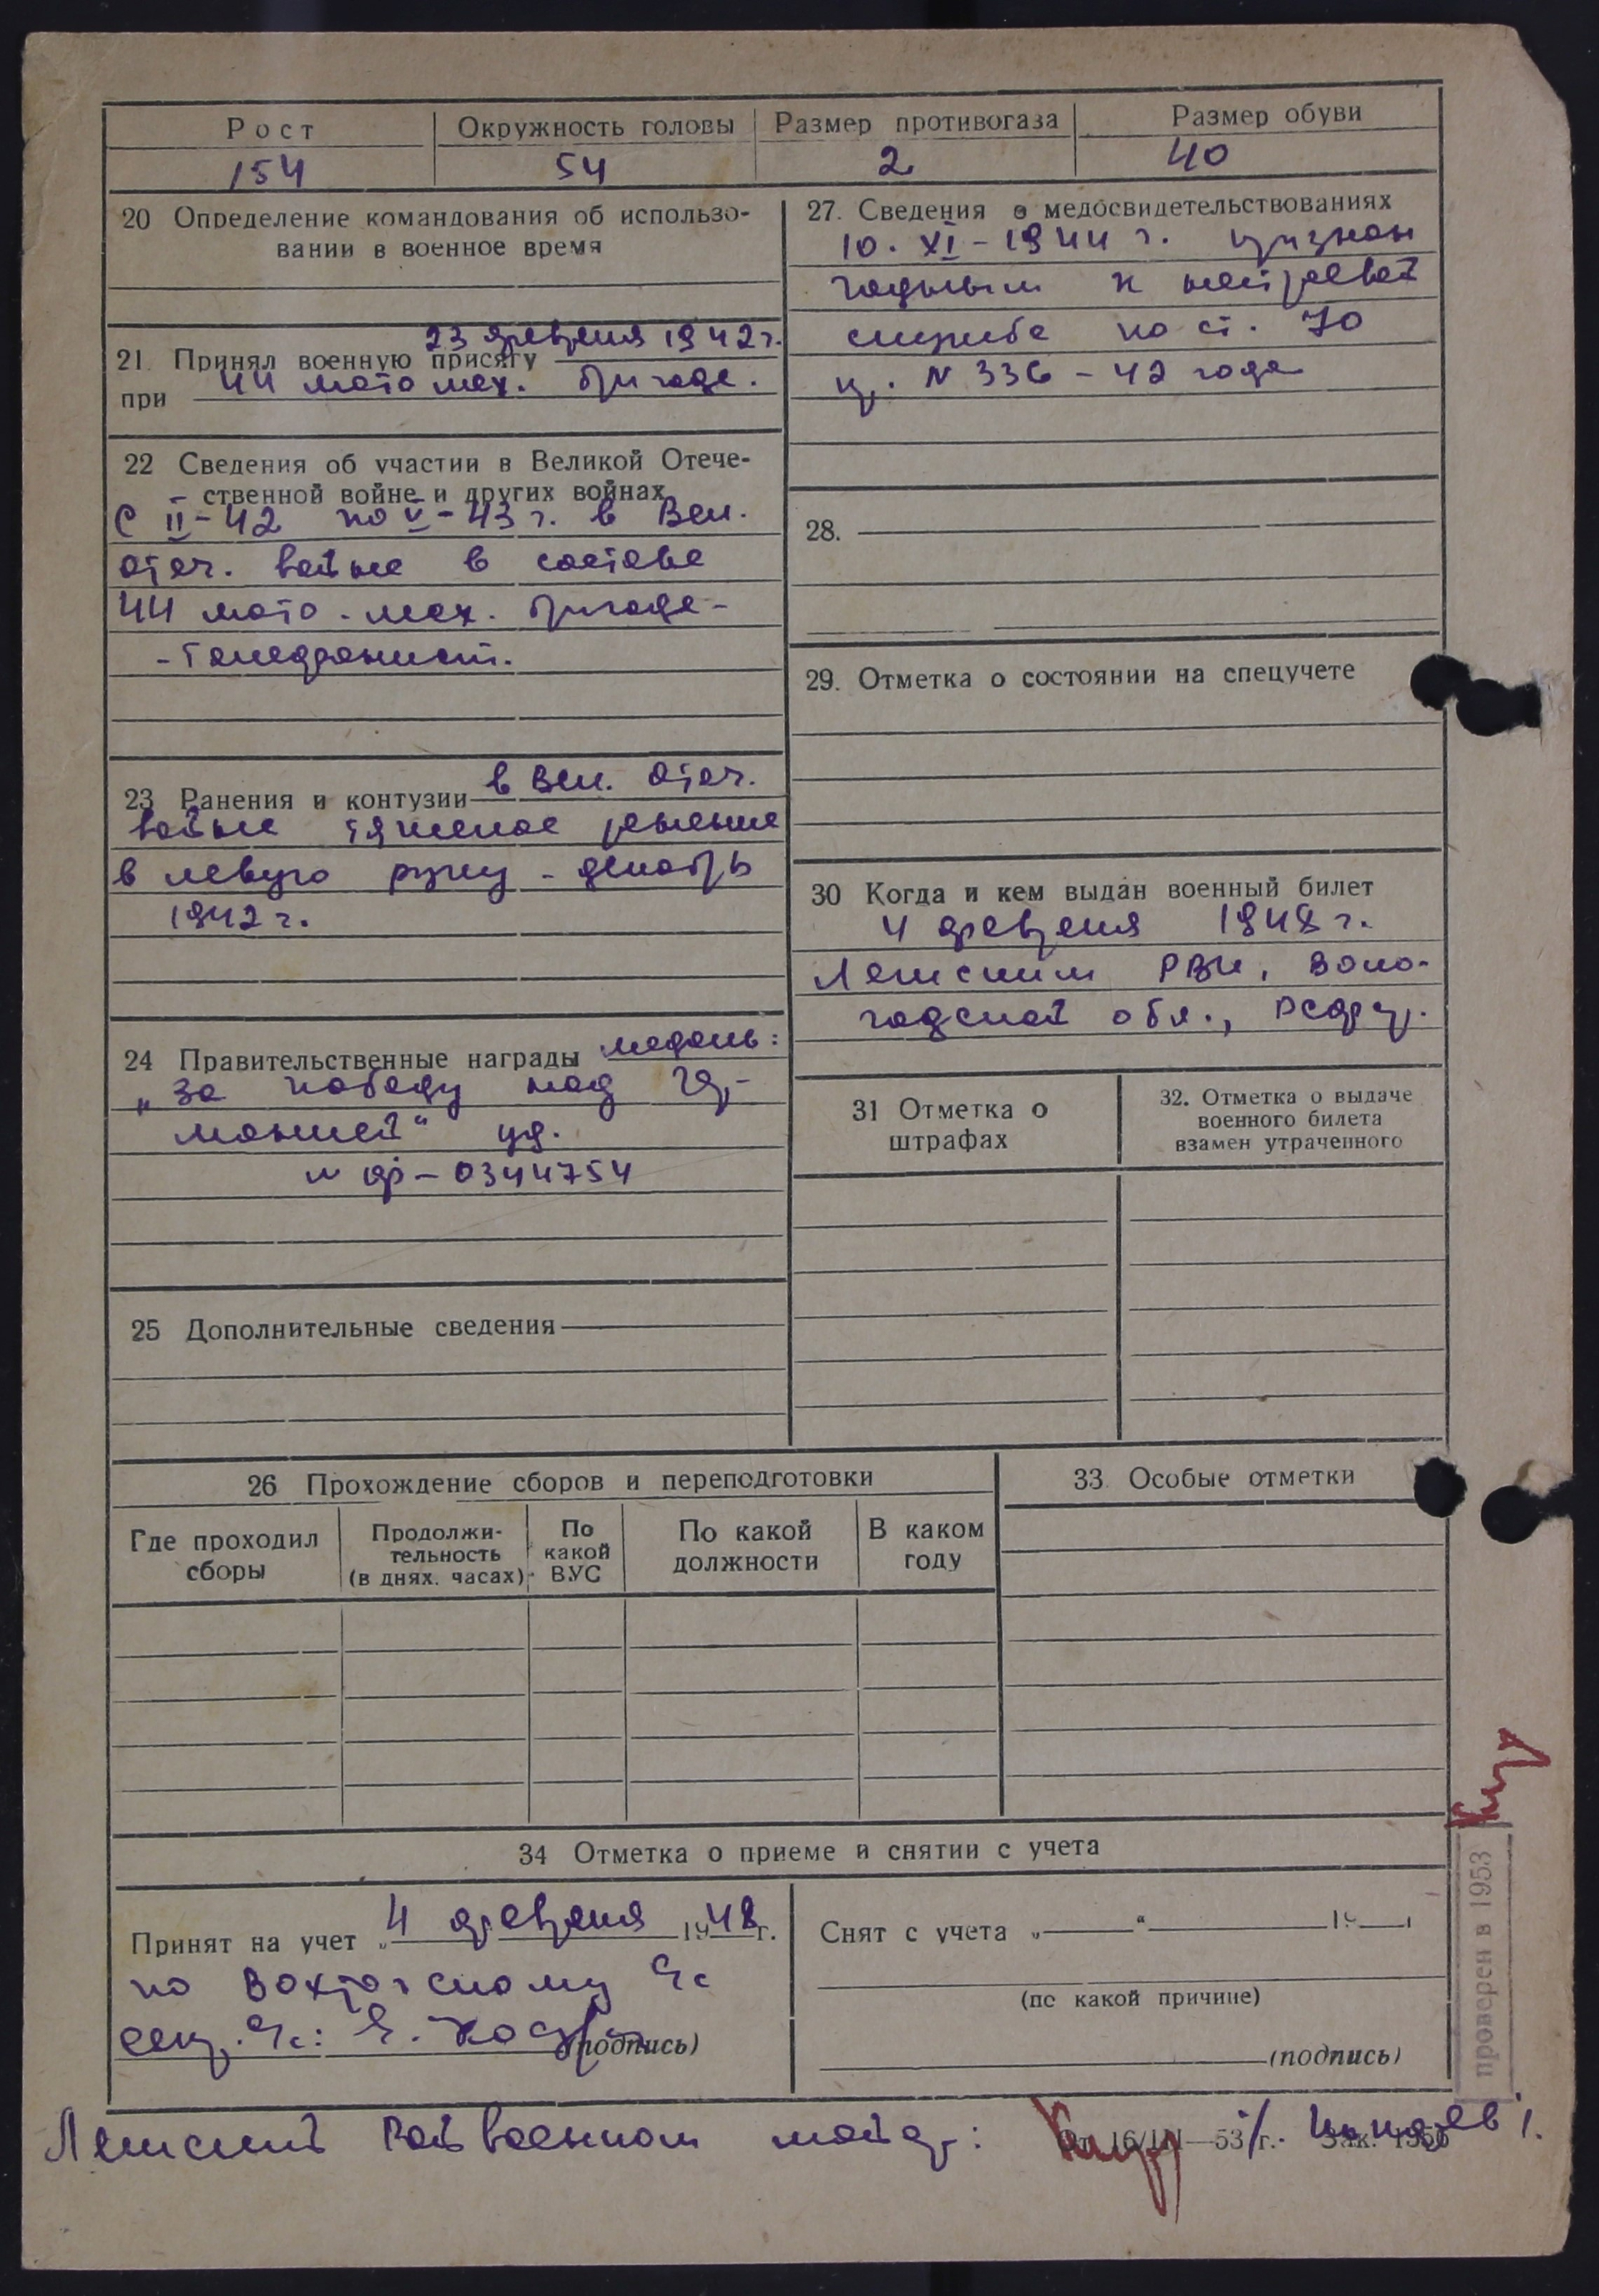 Рост Окружность головы Размер противогаза Размер обуви
154 54 2 40
20 Определение командования об использо-
вании в военное время
21. Принял военную присягу 23 февраля 1942 г.
при 44 мото мех. бригаде.
22 Сведения об участии в Великой Отече-
ственной войне и других войнах
С II-42 по V-43 г. в Вел.
Отеч. войне в составе
44 мото-мех. бригаде-
- телефонист.
23 Ранения и контузии в Вел. Отеч.
войне тяжелое ранение
в левую руку - декабрь
1942 г.
24 Правительственные награды медаль:
„За победу над Гер-
манией“ уд.
N ф-0344754
25 Дополнительные сведения
27. Сведения о медосвидетельствованиях
10. XI-1944 г. признан
годным к нестроевой
службе по ст. 70
пр. N 336-42 года
28.
29. Отметка о состоянии на спецучете
30 Когда и кем выдан военный билет
4 февраля 1948 г.
Лежским РВК, Воло-
годской обл., РСФСР.
31 Отметка о
штрафах
32. Отметка о выдаче
военного билета
взамен утраченного
26 Прохождение сборов и переподготовки
Где проходил
сборы
Продолжи-
тельность
(в днях. часах)
По
какой
ВУС
По какой
должности
В каком
году
33. Особые отметки
34 Отметка о приеме и снятии с учета
Принят на учет „4 февраля 1948 г.
по Вохтогскому
(подпись)
Снят с учета „ “ 19 г
(по какой причине)
(подпись)
проверен в 1953
Лежский Райвоенком майор:
От 16/III—53 г. Зак. 1356